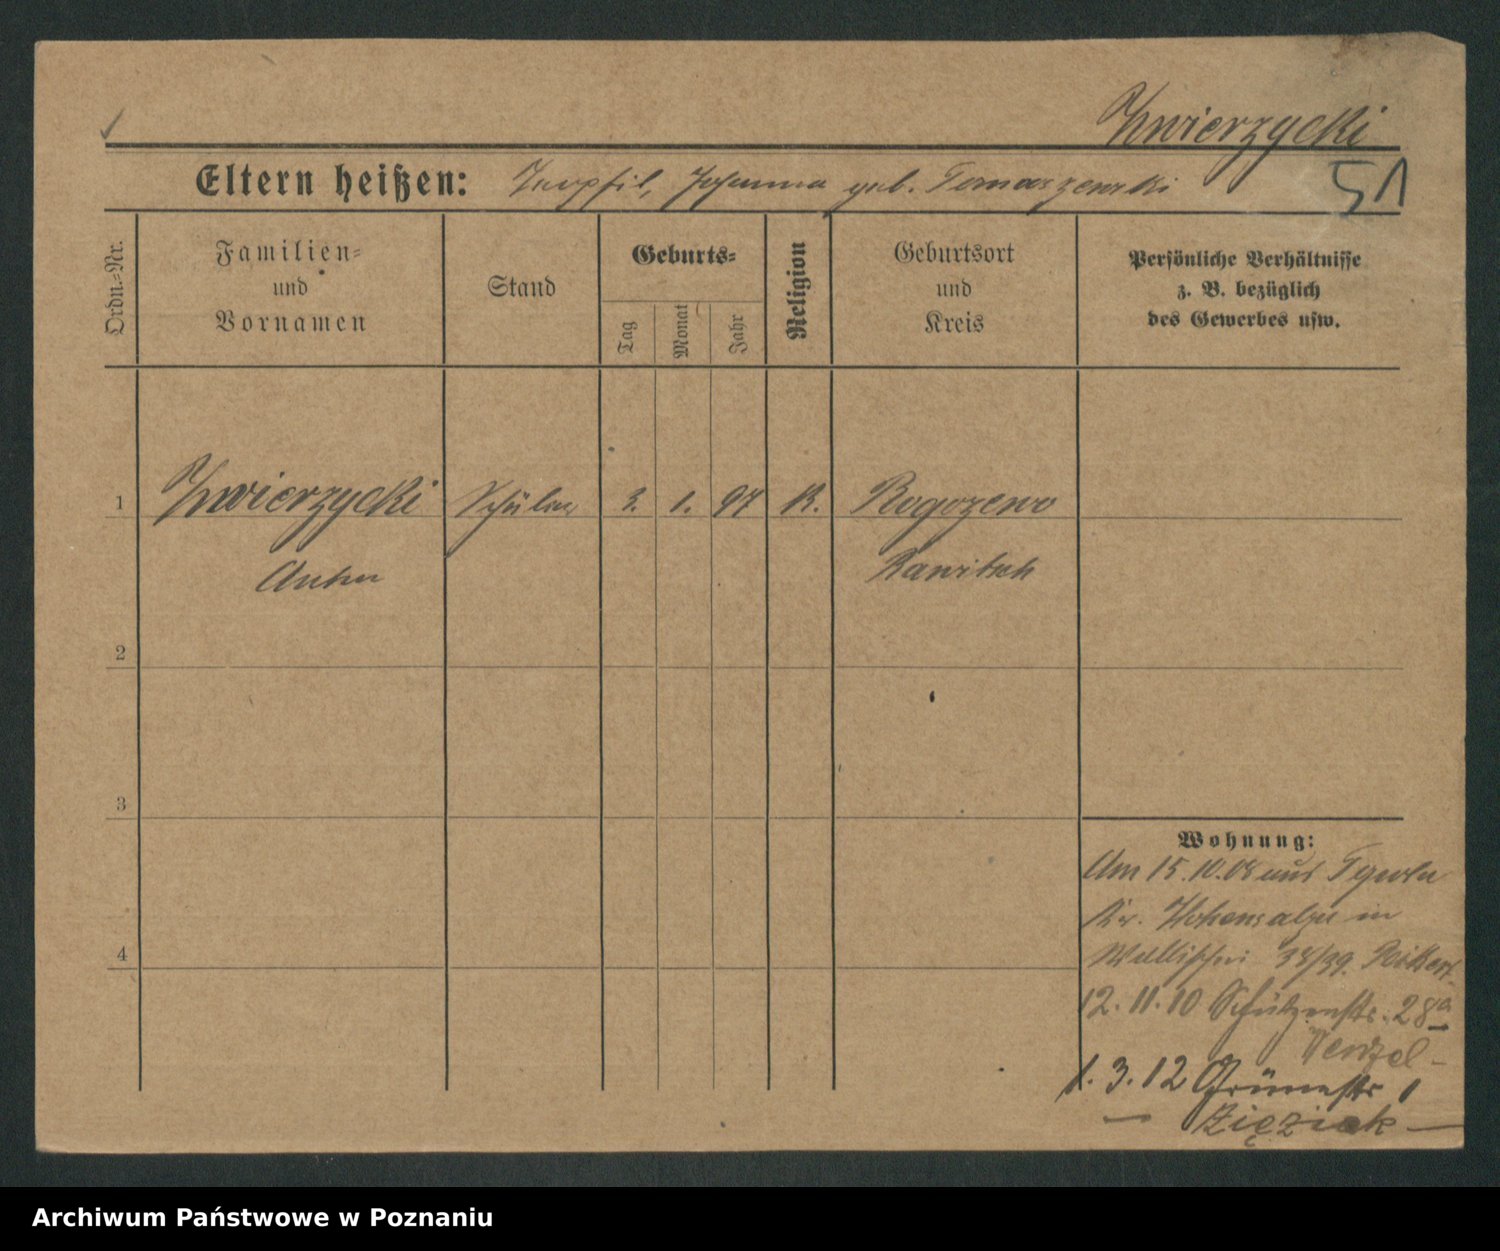 Zwierzycki
Eltern heißen: Teophil, Johanna geb. Tomaszewski
51
Ordn.-Nr.
Familien-
und
Vornamen
Stand
Geburts-
Tag
Monat
Jahr
Religion
Geburtsort
und
Kreis
Persönliche Verhältnisse
z. B. bezüglich
des Gewerbes usw.
1 Zwierzycki Schüler 3. 1. 97 K. Rogozewo
Anton Rawitsch
2
3
4
Wohnung:
Am 15.10.08 aus
Kr. Hohensalza in
Wallischei 38/39.
12.11.10 Schützenstr. 28a
Wenzel -
1.3.12 Grünestr 1
— Zięziak —
Archiwum Państwowe w Poznaniu